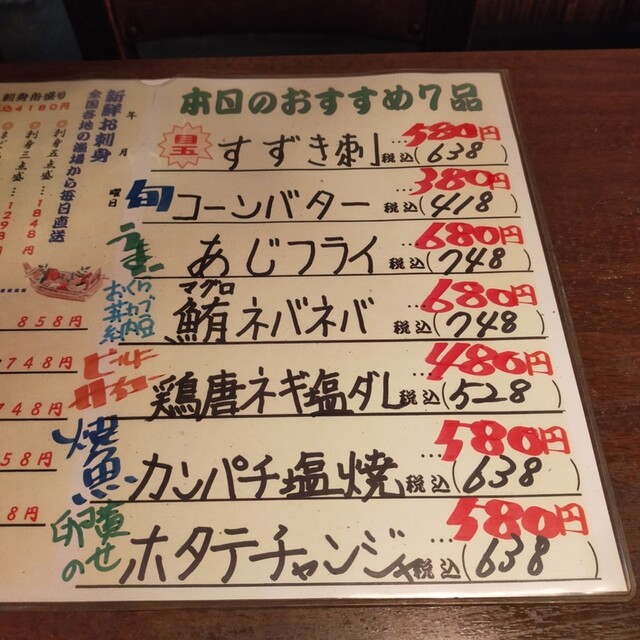 本日のおすすめ7品
目玉 すずき刺 580円 税込(638)
旬 コーンバター …380円 税込(418)
うまー あじフライ …680円 税込(748)
おくら
納豆
マグロ
鮪ネバネバ …680円 税込(748)
ビールに
鶏唐ネギ塩ダレ 480円 税込(528)
焼魚 カンパチ塩焼 …580円 税込(638)
卵黄のせ ホタテチャンジャ …580円 税込(638)
年 月 曜日
新鮮お刺身
全国各地の漁場から毎日直送
◎刺身五点盛…1848円
◎刺身三点盛…1298円
4180円
858円
748円
748円
58円
8円